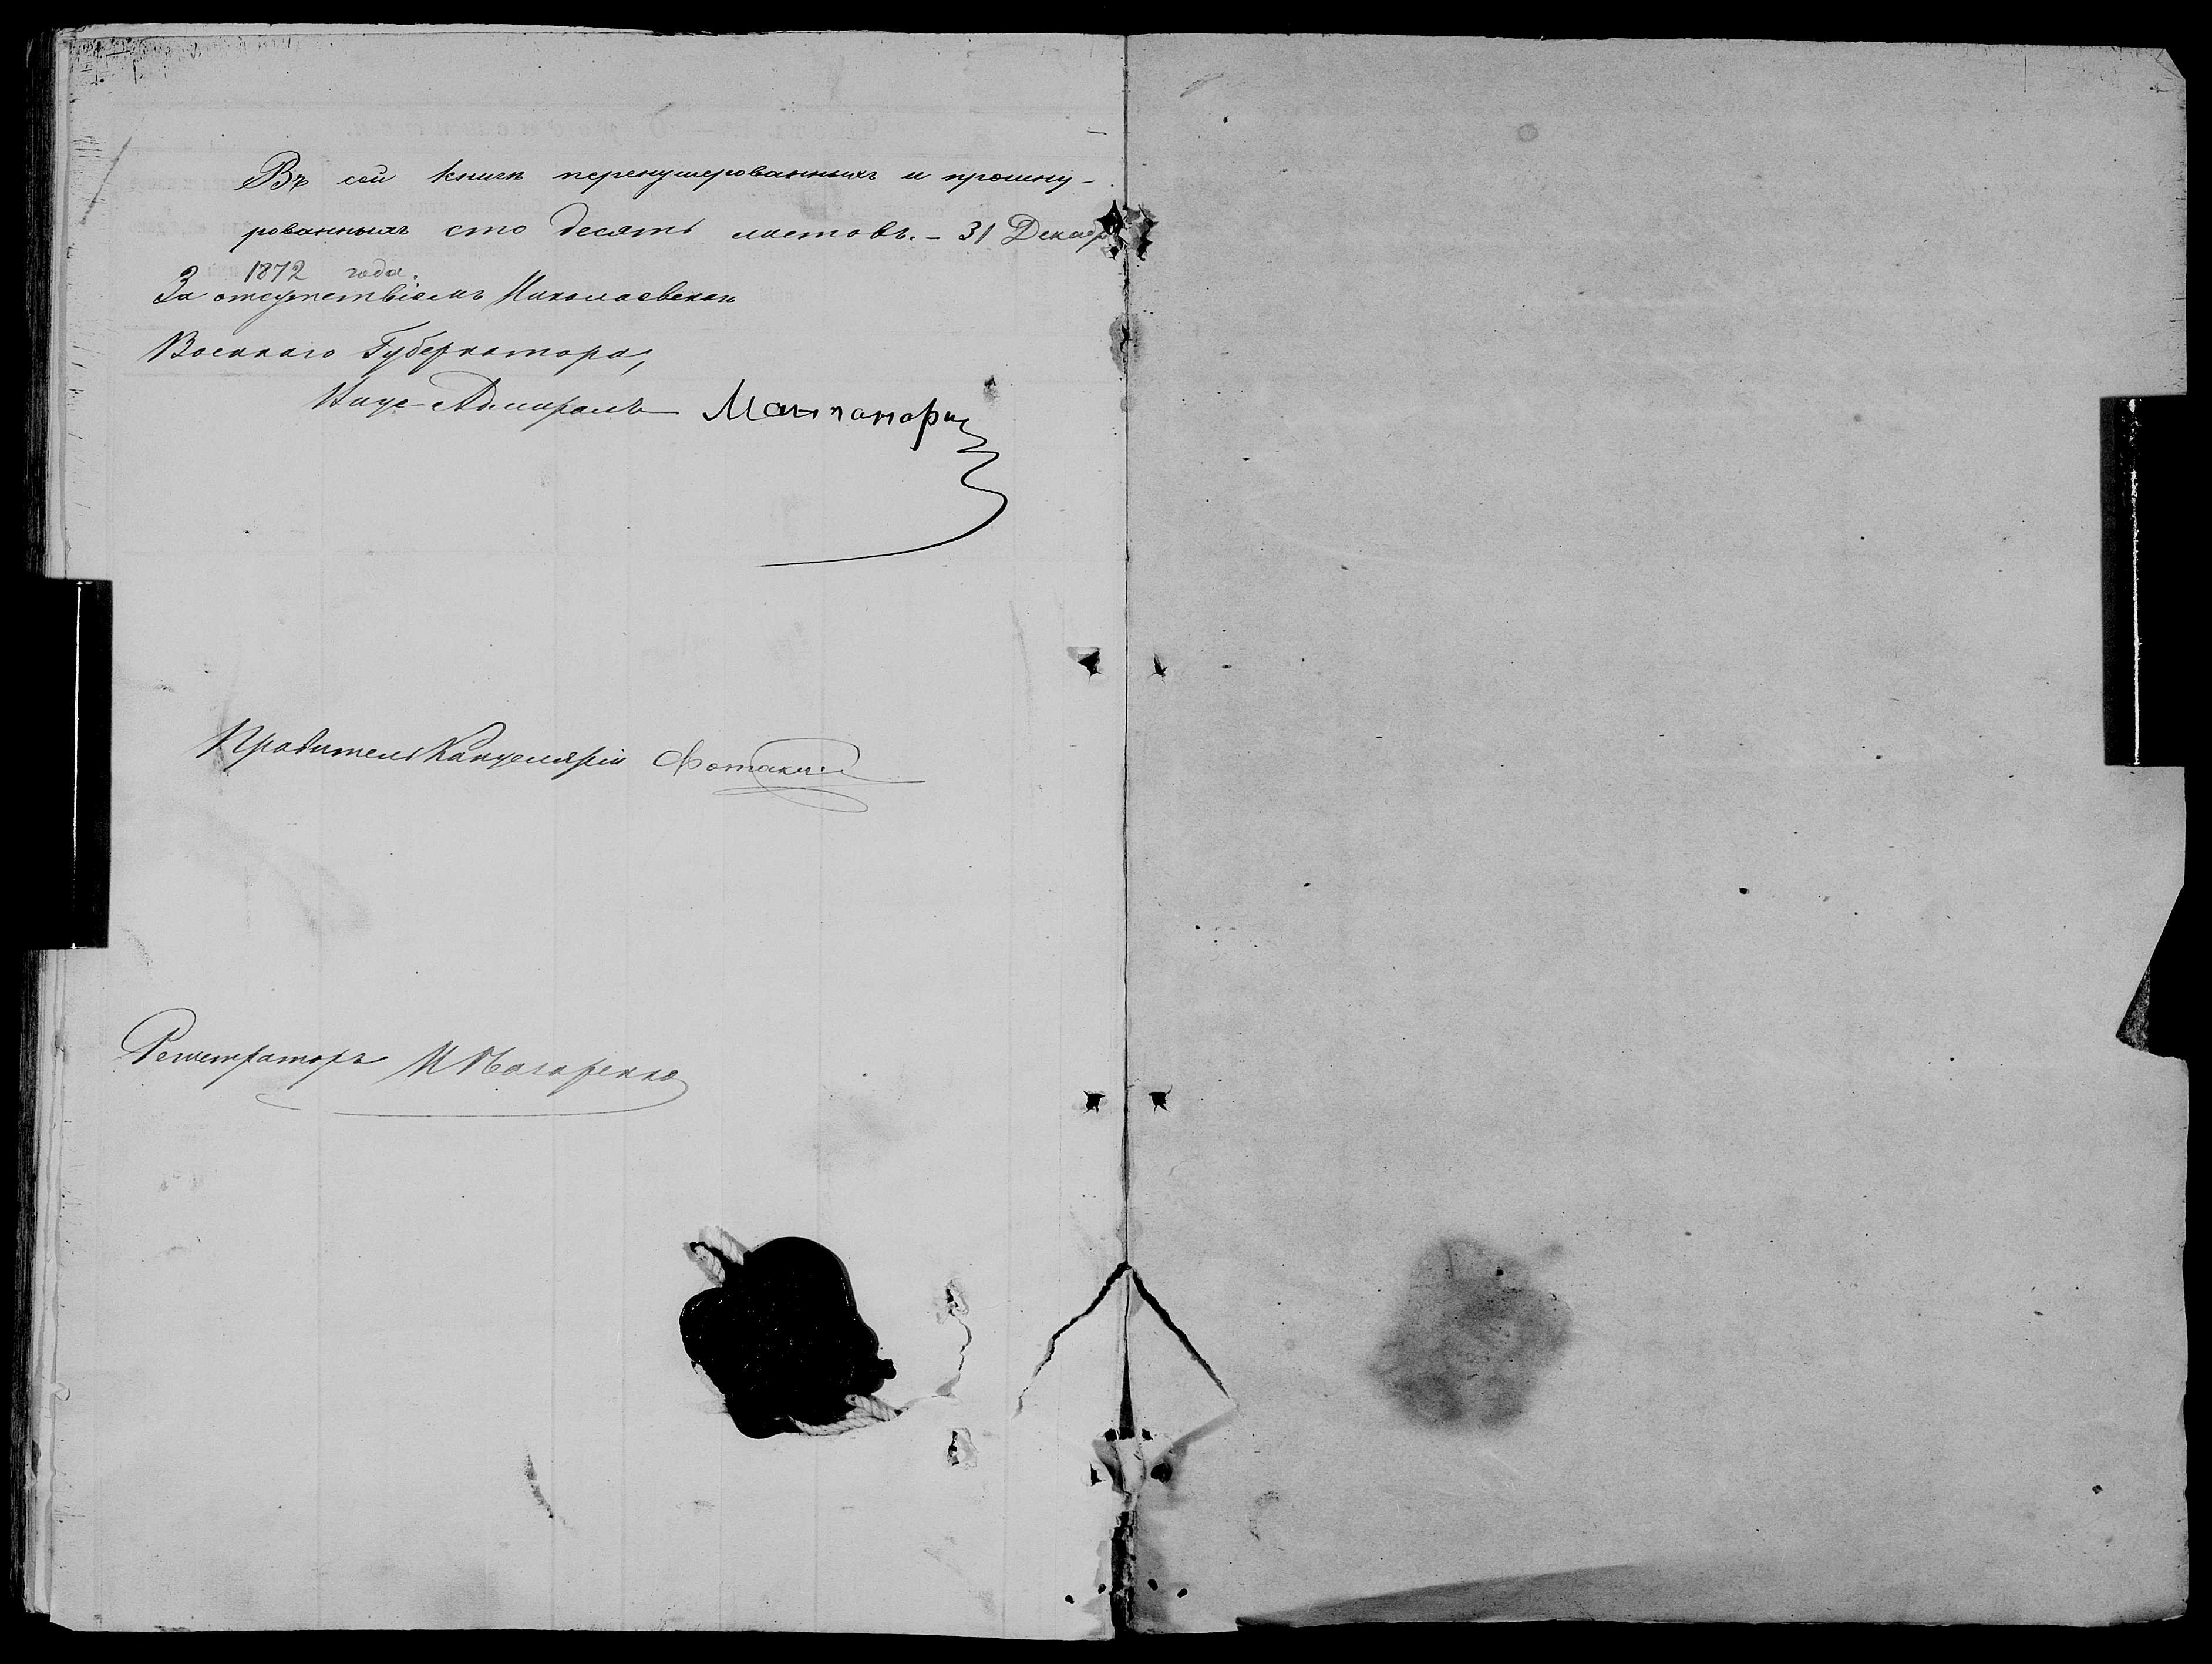 Въ сей книгѣ перенумерованныхъ и прошну-
рованныхъ сто десять листовъ. – 31 Декабря
1872 года.
За отсутствіемъ Николаевскаго
Военнаго Губернатора,
Вице-Адмиралъ Манганари
Правитель Канцеляріи Фотаки
Регистраторъ И Назаренко